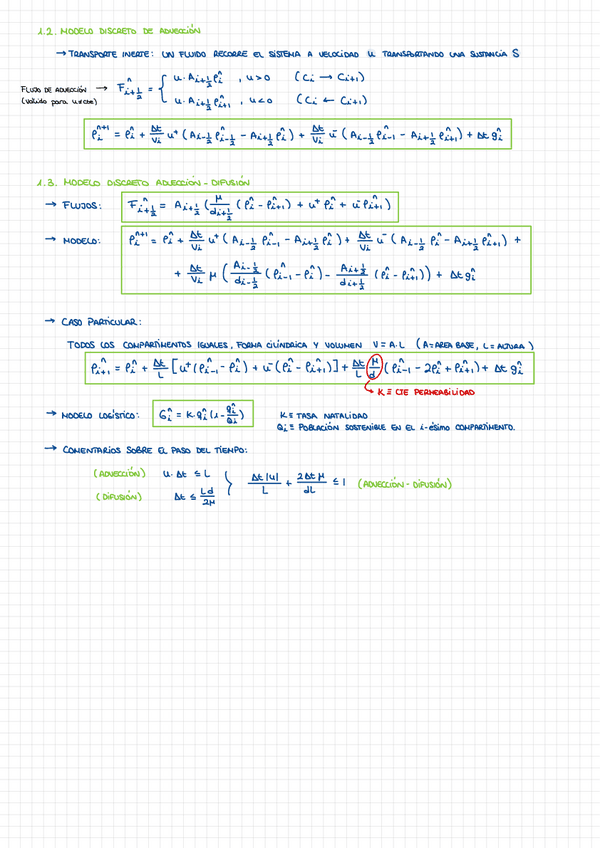 1.2. MODELO DISCRETO DE ADVECCIÓN
→ TRANSPORTE INERTE: UN FLUIDO RECORRE EL SISTEMA A VELOCIDAD u TRANSPORTANDO UNA SUSTANCIA S
FLUJO DE ADVECCIÓN (válido para u=cte) → F^n_{i+1/2} = { u·A_{i+1/2} ρ^n_i , u>0 (C_i → C_{i+1})
u·A_{i+1/2} ρ^n_{i+1} , u<0 (C_i ← C_{i+1})
ρ^{n+1}_i = ρ^n_i + Δt/V_i u⁺ (A_{i-1/2} ρ^n_{i-1/2} − A_{i+1/2} ρ^n_i) + Δt/V_i u⁻ (A_{i-1/2} ρ^n_{i-1} − A_{i+1/2} ρ^n_{i+1}) + Δt g^n_i
1.3. MODELO DISCRETO ADVECCIÓN-DIFUSIÓN
→ FLUJOS: F^n_{i+1/2} = A_{i+1/2} (μ/d_{i+1/2} (ρ^n_i − ρ^n_{i+1}) + u⁺ρ^n_i + u⁻ρ^n_{i+1})
→ MODELO: ρ^{n+1}_i = ρ^n_i + Δt/V_i u⁺ (A_{i-1/2} ρ^n_{i-1} − A_{i+1/2} ρ^n_i) + Δt/V_i u⁻ (A_{i-1/2} ρ^n_i − A_{i+1/2} ρ^n_{i+1}) +
+ Δt/V_i μ (A_{i-1/2}/d_{i-1/2} (ρ^n_{i-1} − ρ^n_i) − A_{i+1/2}/d_{i+1/2} (ρ^n_i − ρ^n_{i+1})) + Δt g^n_i
→ CASO PARTICULAR:
TODOS LOS COMPARTIMENTOS IGUALES, FORMA CILÍNDRICA Y VOLUMEN V=A·L (A=AREA BASE, L=ALTURA)
ρ^n_{i+1} = ρ^n_i + Δt/L [u⁺(ρ^n_{i-1} − ρ^n_i) + u⁻(ρ^n_i − ρ^n_{i+1})] + Δt/L μ/d (ρ^n_{i-1} − 2ρ^n_i + ρ^n_{i+1}) + Δt g^n_i
K ≡ CTE PERMEABILIDAD
→ MODELO LOGÍSTICO: G^n_i = K·q^n_i (1 − q^n_i/Q_i) K ≡ TASA NATALIDAD
Q_i ≡ POBLACIÓN SOSTENIBLE EN EL i-ÉSIMO COMPARTIMENTO.
→ COMENTARIOS SOBRE EL PASO DEL TIEMPO:
(ADVECCIÓN) u·Δt ≤ L } Δt|u|/L + 2Δtμ/dL ≤ 1 (ADVECCIÓN-DIFUSIÓN)
(DIFUSIÓN) Δt ≤ Ld/2μ